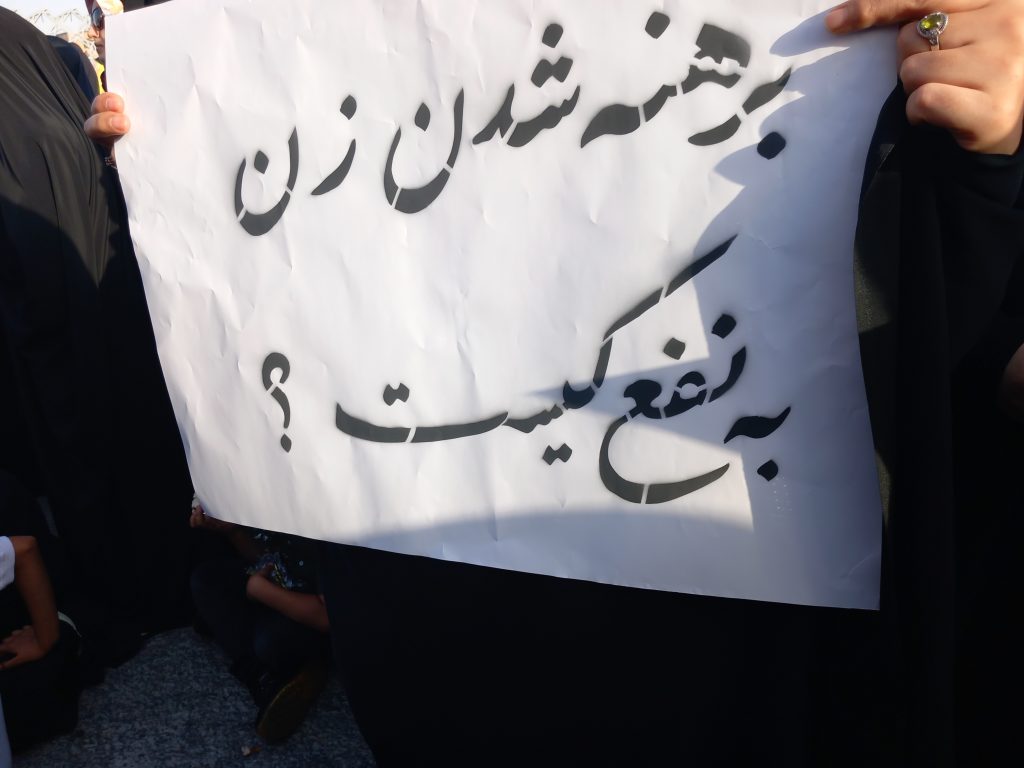 برهنه شدن زن
به نفع کیست ؟